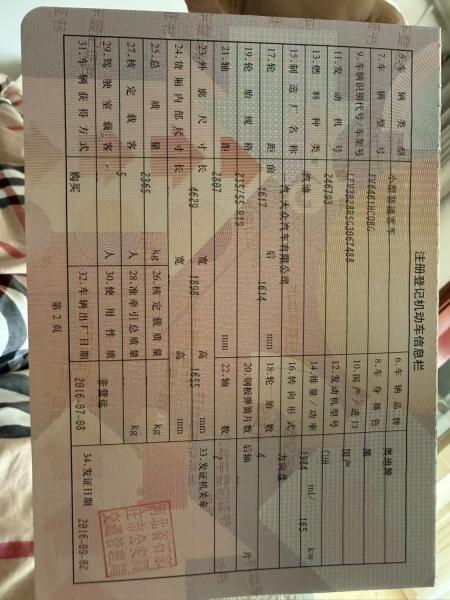 注册登记机动车信息栏
5.车辆类型 小型普通客车 6.车辆品牌 奥迪牌
7.车辆型号 FV6461HCQBG 8.车身颜色 黑
9.车辆识别代号/车架号 LFV3B28R5G3067488 10.国产/进口 国产
11.发动机号 246793 12.发动机型号 CUH
13.燃料种类 汽油 14.排量/功率 1984 ml/ 165 kw
15.制造厂名称 一汽-大众汽车有限公司 16.转向形式 方向盘
17.轮距 前 1617 后 1614 mm 18.轮胎数 4
19.轮胎规格 235/55 R19 20.钢板弹簧片数 后轴 片
21.轴距 2807 mm 22.轴数 2
23.外廓尺寸 长 4629 宽 1898 高 1655 mm 33.发证机关章
24.货厢内部尺寸 长 宽 高 mm
25.总质量 2365 kg 26.核定载质量 kg
27.核定载客 5 人 28.准牵引总质量 kg
29.驾驶室载客 人 30.使用性质 非营运
31.车辆获得方式 购买 32.车辆出厂日期 2016-07-08 34.发证日期 2016-09-02
第2页